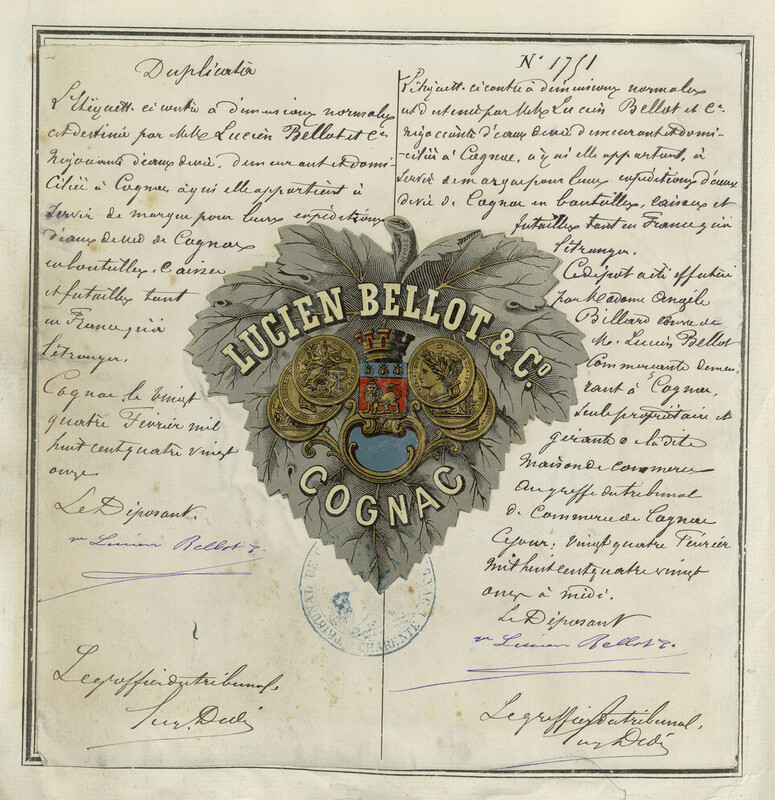 Duplicata
L'étiquette ci contre à dimensions normales
est destinée par M.M. Lucien Bellot et Cie
Négociants d'eaux de vie, demeurant et domi-
ciliés à Cognac, à qui elle appartient à
servir de marque pour leurs expéditions
d'eaux de vie de Cognac
en bouteilles, caisses
et futailles tant
en France qu'à
l'étranger.
Cognac le vingt
quatre Février mil
huit cent quatre vingt
onze
Le Déposant.
ve Lucien Bellot
Le greffier du tribunal.
N° 1751
L'étiquette ci contre à dimensions normales
est destinée par M.M. Lucien Bellot et Cie
négociants d'eaux de vie demeurant et domi-
-ciliés à Cognac, à qui elle appartient, à
servir de marque pour leurs expéditions d'eaux
de vie de Cognac en bouteilles, caisses et
futailles tant en France qu'à
l'étranger.
Ce dépôt a été effectué
par Madame Angèle
Billard veuve de
M. Lucien Bellot
Commerçante demeu
rant à Cognac,
seule propriétaire et
gérante de la dite
maison de commerce
au greffe du tribunal
de Commerce de Cognac
Ce jour, vingt quatre Février
mil huit cent quatre vingt
onze à midi.
Le Déposant
ve Lucien Bellot
Le greffier du tribunal.
LUCIEN BELLOT & Co
COGNAC
TRIBUNAL DE
CHARENTE